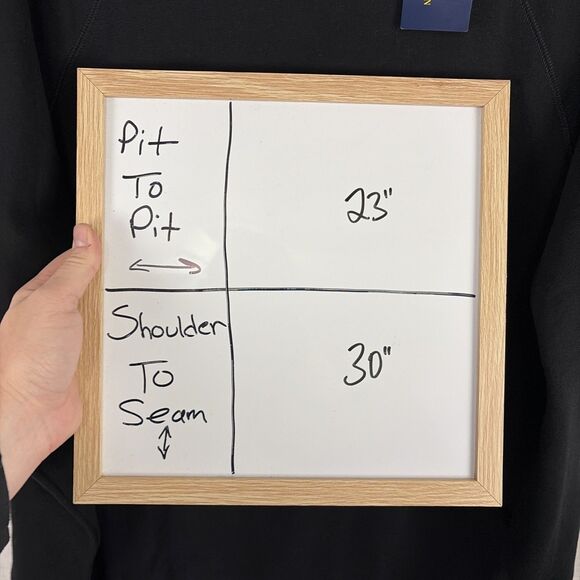 Pit
To
Pit
23"
Shoulder
To
Seam
30"